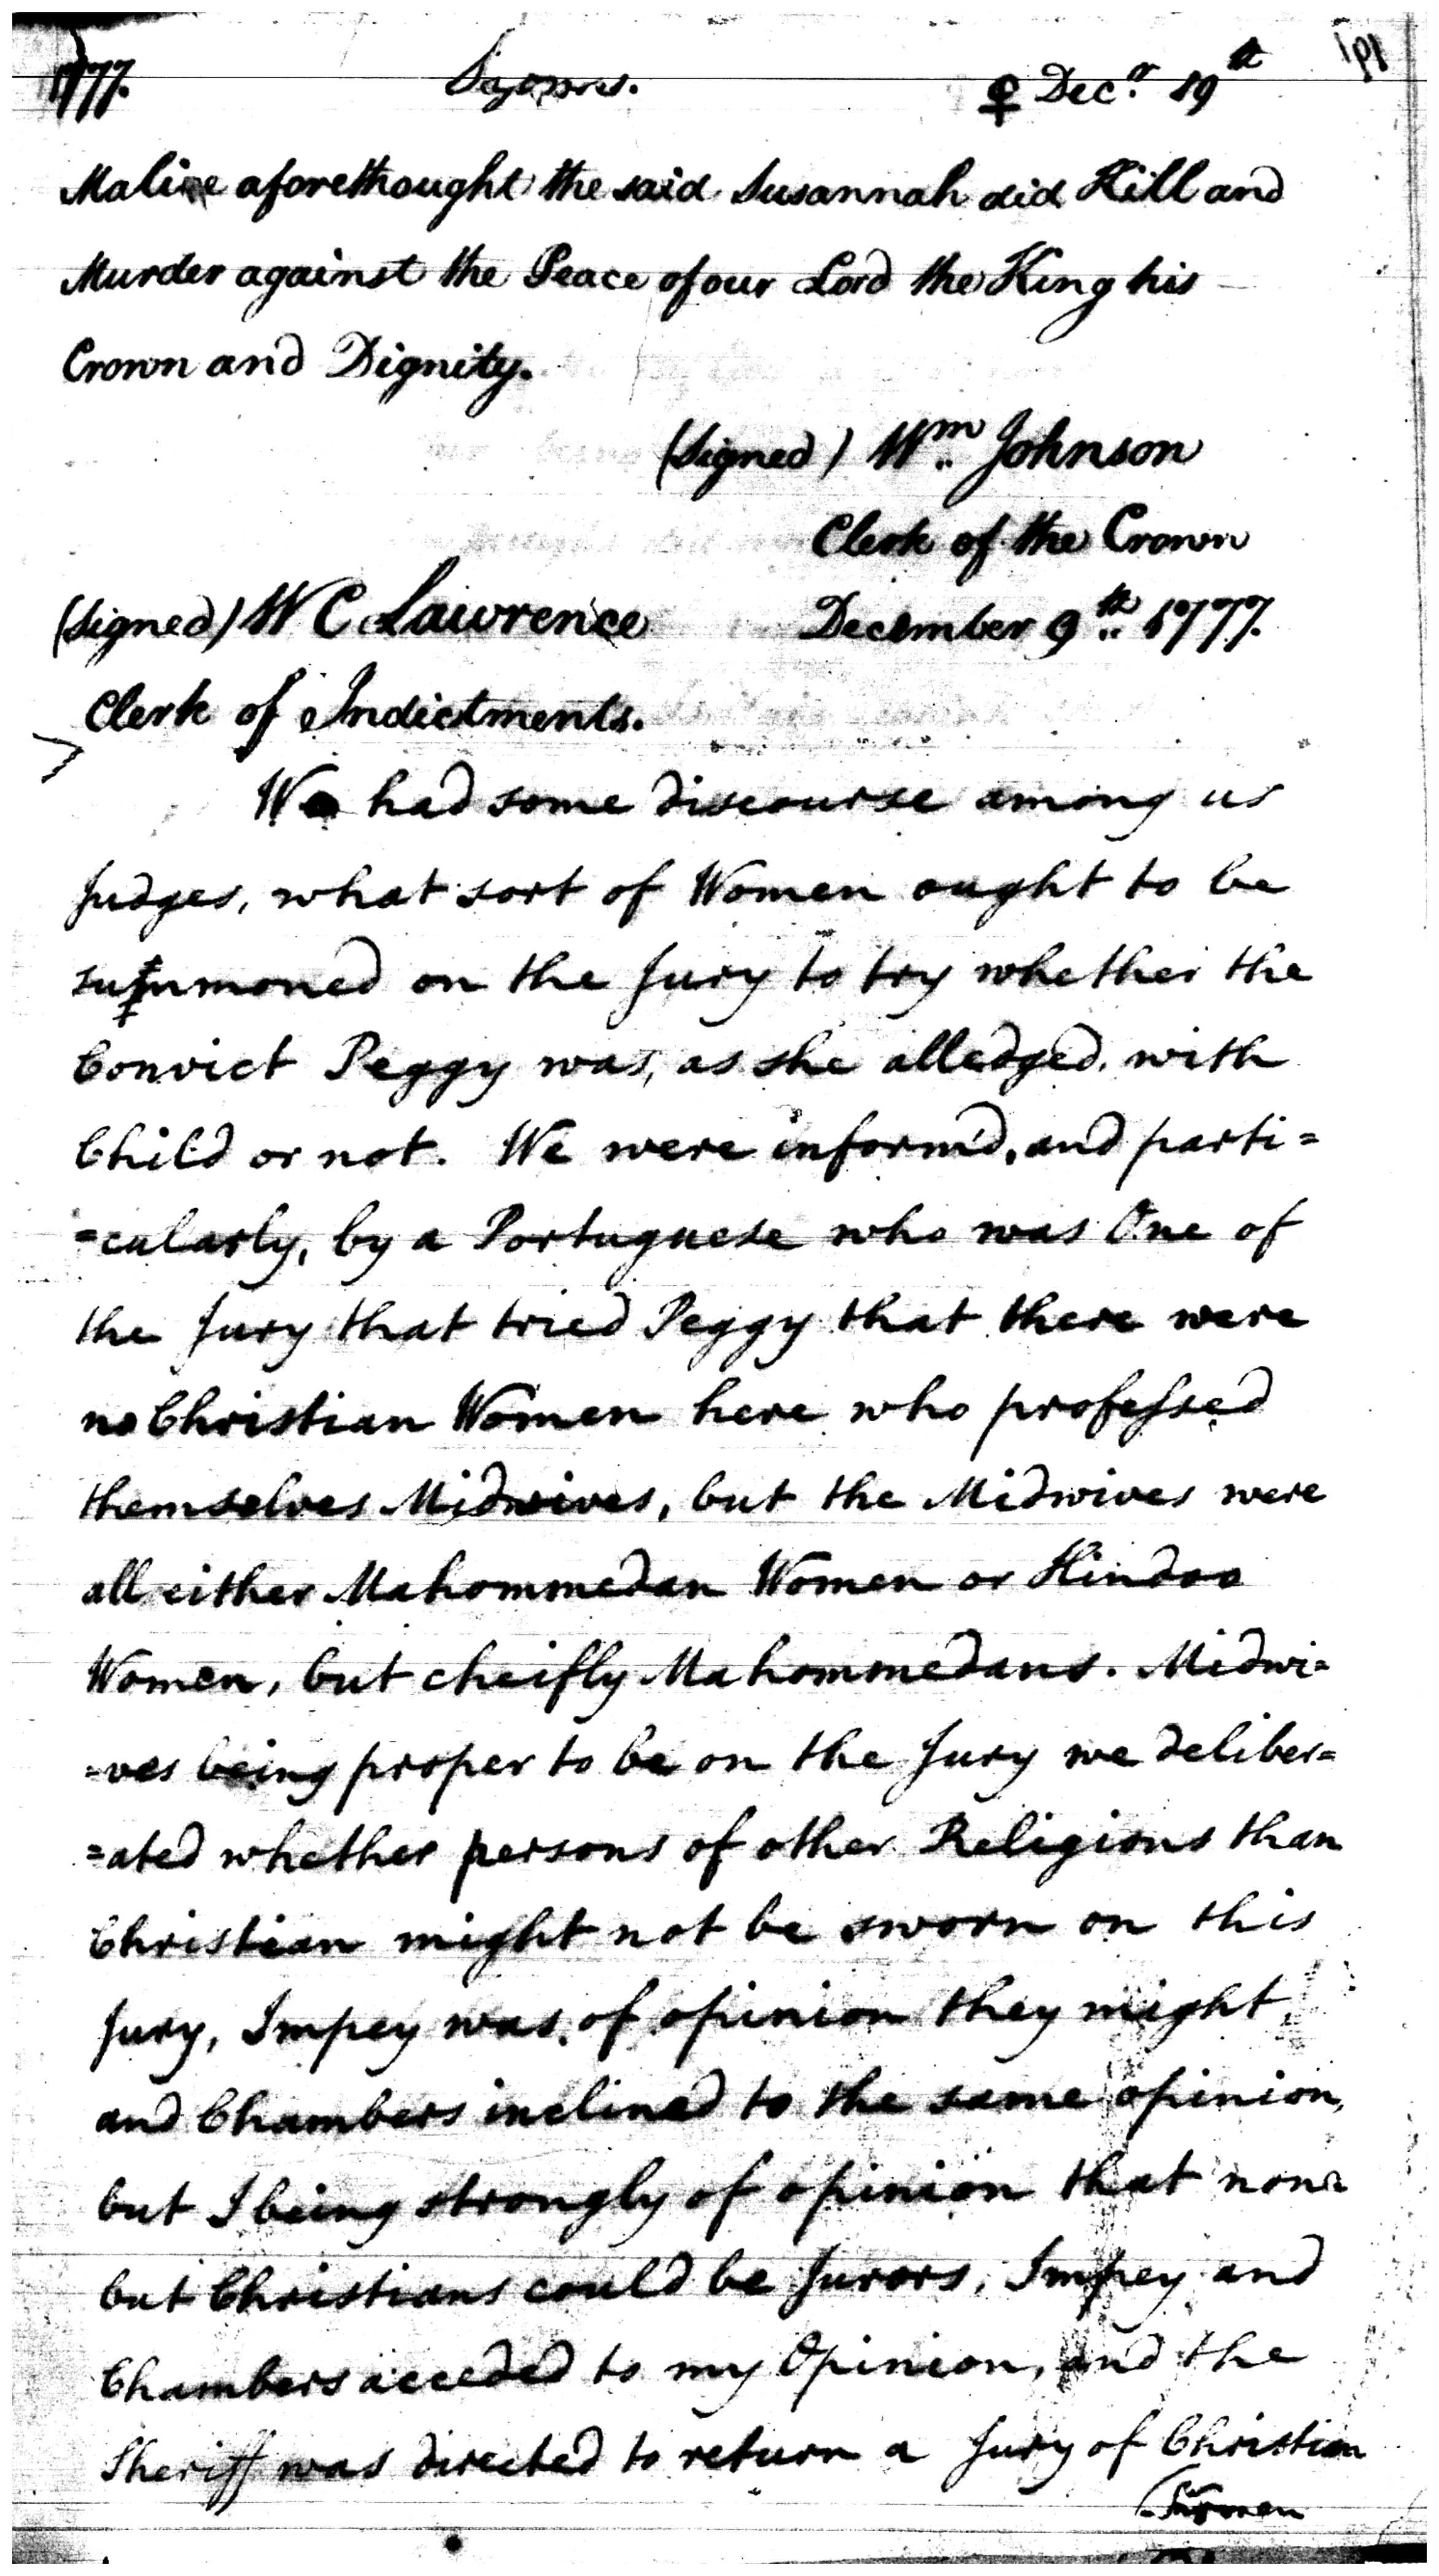 1777. ♀ Decr. 19th
Malice aforethought the said Susannah did Kill and
Murder against the Peace of our Lord the King his
Crown and Dignity.
(Signed) Wm. Johnson
Clerk of the Crown
(Signed) W C Lawrence December 9th. 1777.
Clerk of Indictments.
We had some discourse among us
Judges, what sort of Women ought to be
summoned on the Jury to try whether the
Convict Peggy was, as she alledged, with
Child or not. We were inform'd, and parti=
=cularly, by a Portuguese who was One of
the Jury that tried Peggy that there were
no Christian Women here who professed
themselves Midwives, but the Midwives were
all either Mahommedan Women or Hindoo
Women, but cheifly Mahommedans. Midwi=
=ves being proper to be on the Jury we deliber=
=ated whether persons of other Religions than
Christian might not be sworn on this
Jury, Impey was of opinion they might,
and Chambers inclined to the same opinion,
but I being strongly of opinion that none
but Christians could be Jurors, Impey and
Chambers acceded to my Opinion, and the
Sheriff was directed to return a Jury of Christian